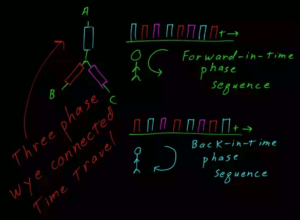 A
B
C
Three phase
wye connected
Time Travel
+→
Forward-in-time
phase
sequence
+→
Back-in-time
phase
sequence